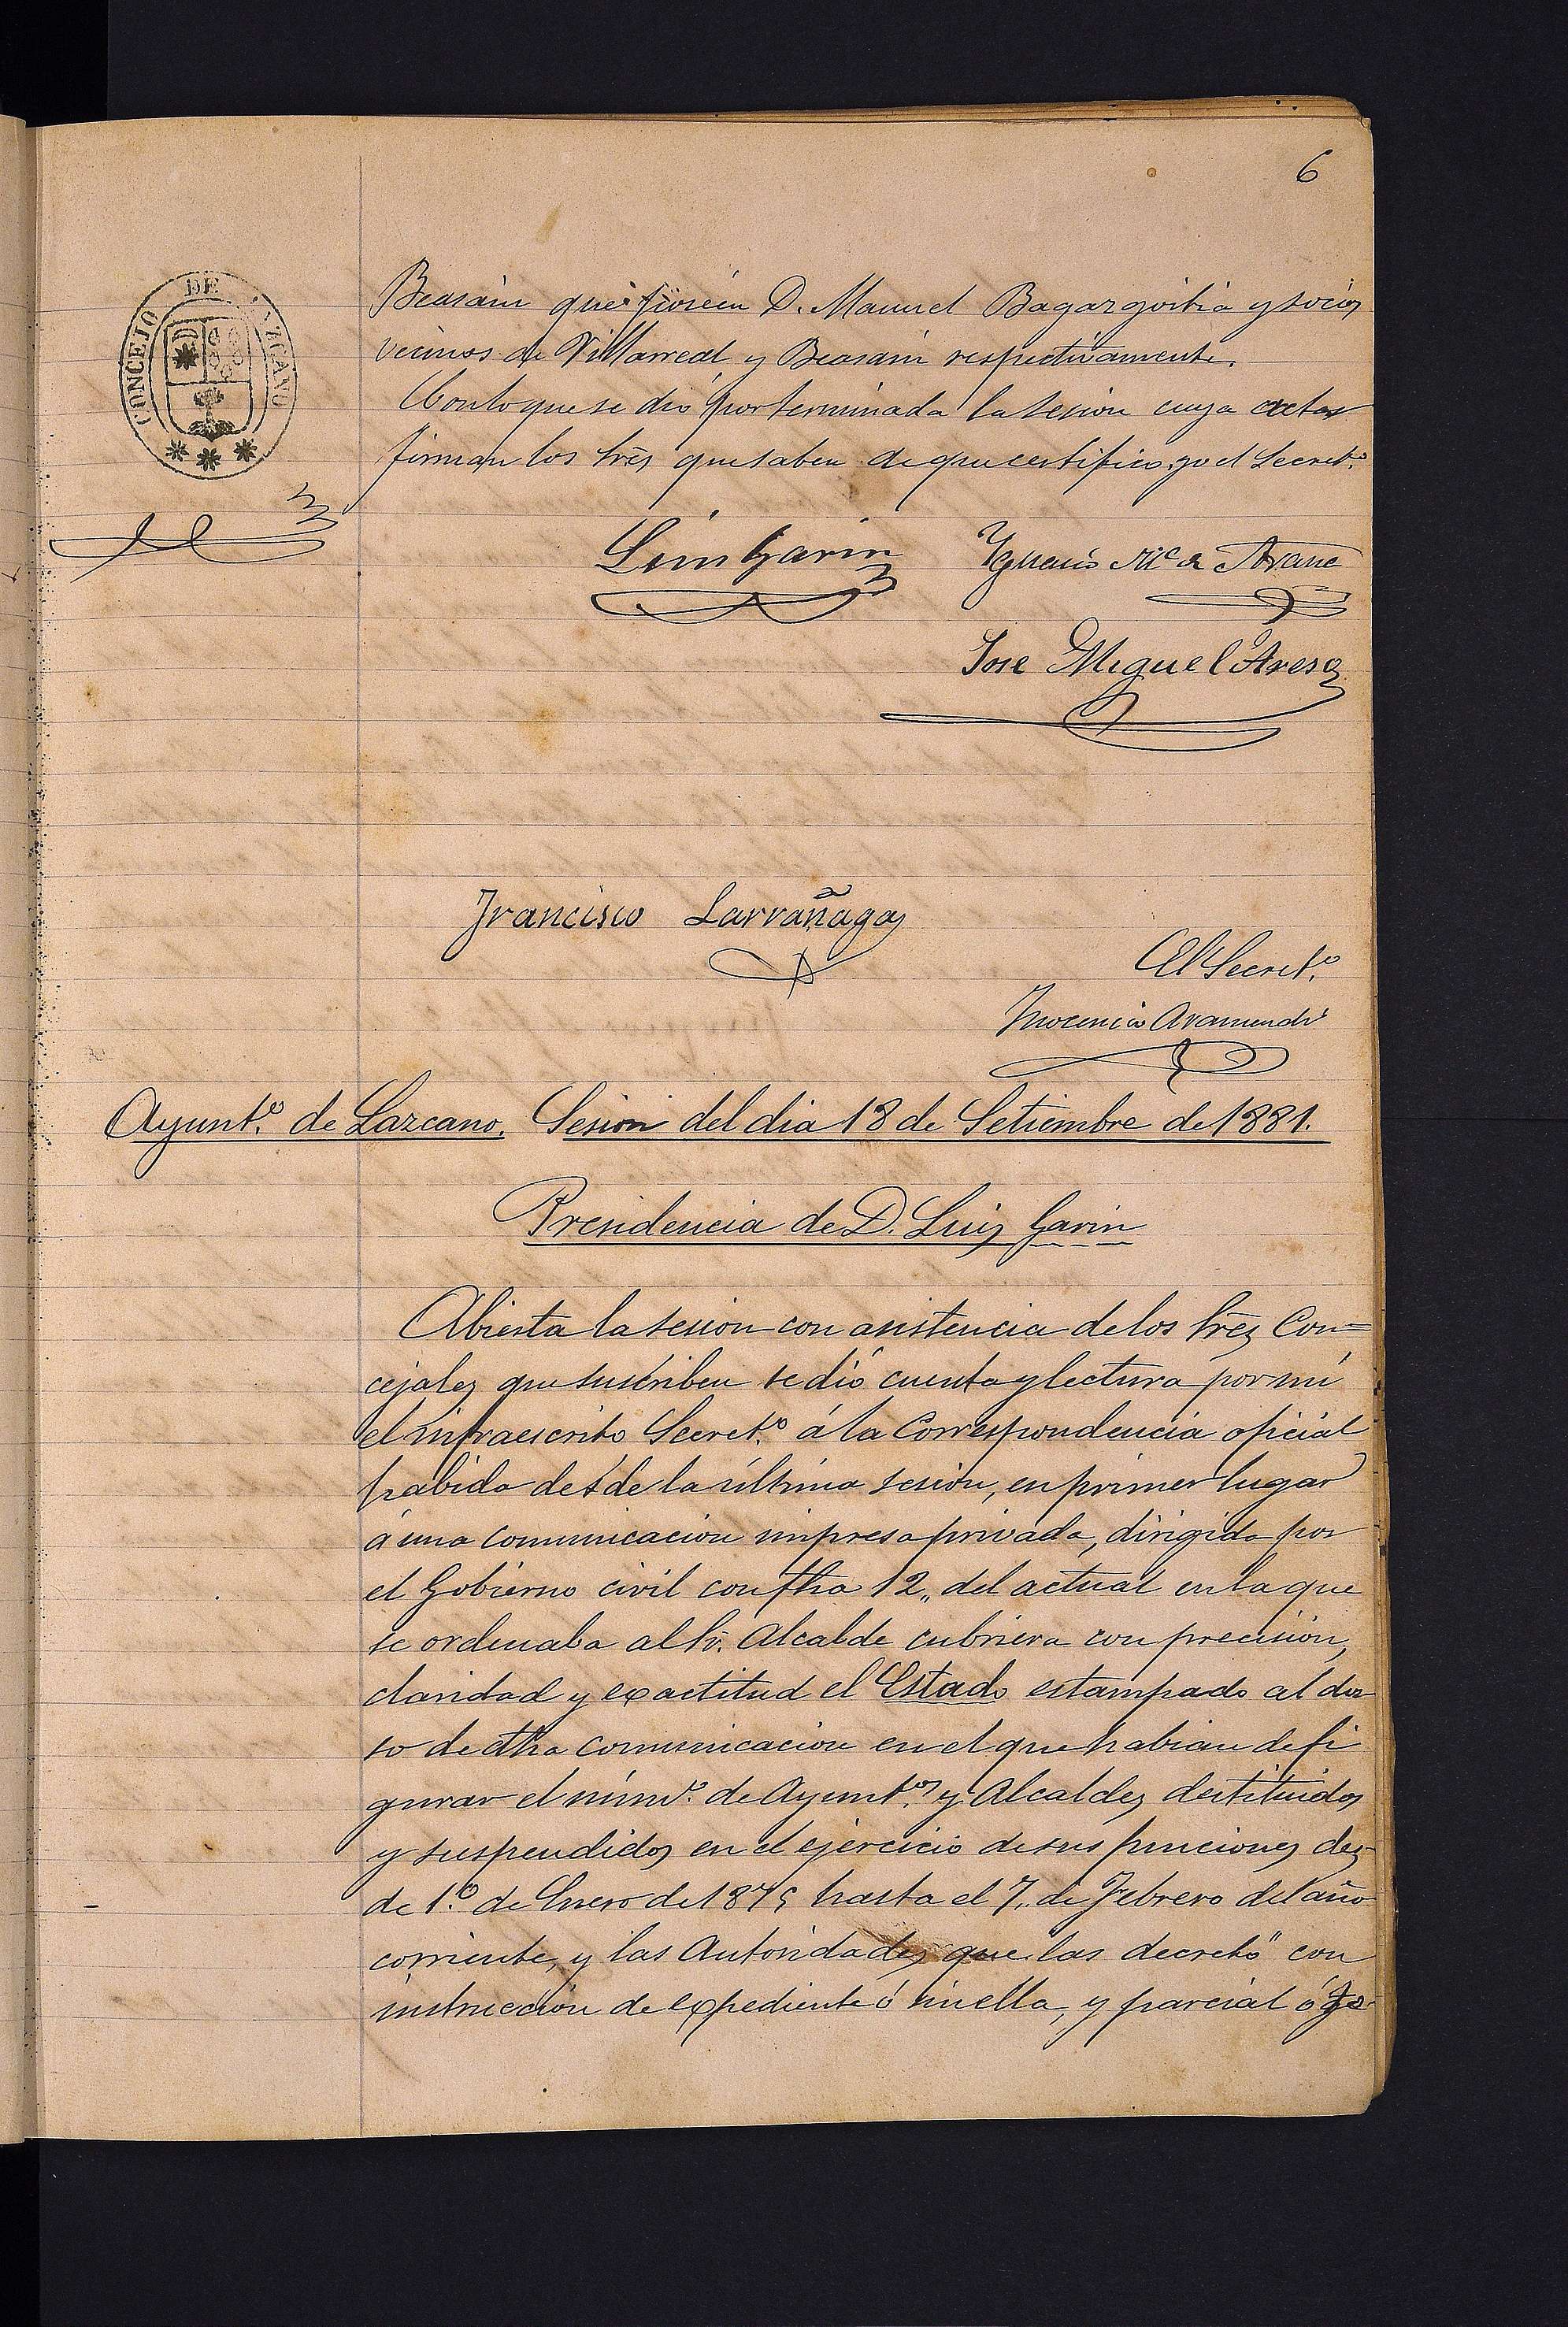 6
CONCEJO DE LAZCANO
Beasain que poseen D. Manuel Bagazgoitia y socios
vecinos de Villarreal y Beasain respectivamente.
Con lo que se dió por terminada la sesion cuya acta
firman los Srẽs que saben de que certifico yo el Secret.º
Luis Garin Ygnacio M.ª de Arane
Jose Miguel Aresa
Francisco Larrañaga
El Secret.º
Inocencio Aramendi
Ayunt.º de Lazcano. Sesion del dia 18 de Setiembre de 1881.
Presidencia de D. Luis Garin
Abierta la sesion con asistencia de los Srẽs Con=
cejales que suscriben se dió cuenta y lectura por mi
el infraescrito Secret.º á la Correspondencia oficial
habida desde la última sesion, en primer lugar
á una comunicacion impresa privada, dirigida por
el Gobierno civil con fha 12,, del actual en la que
se ordenaba al Sr. Alcalde cubriera con precision,
claridad y exactitud el Estado estampado al dor
so de dha comunicacion en el que habian de fi
gurar el núm.º de Ayunt.os y Alcaldes destituidos
y suspendidos en el ejercicio de sus funciones des-
de 1.º de Enero de 1875 hasta el 7,, de Febrero del año
corriente, y las Autoridades que las decretó con
instruccion de expediente ó sin ella, y parcial ó